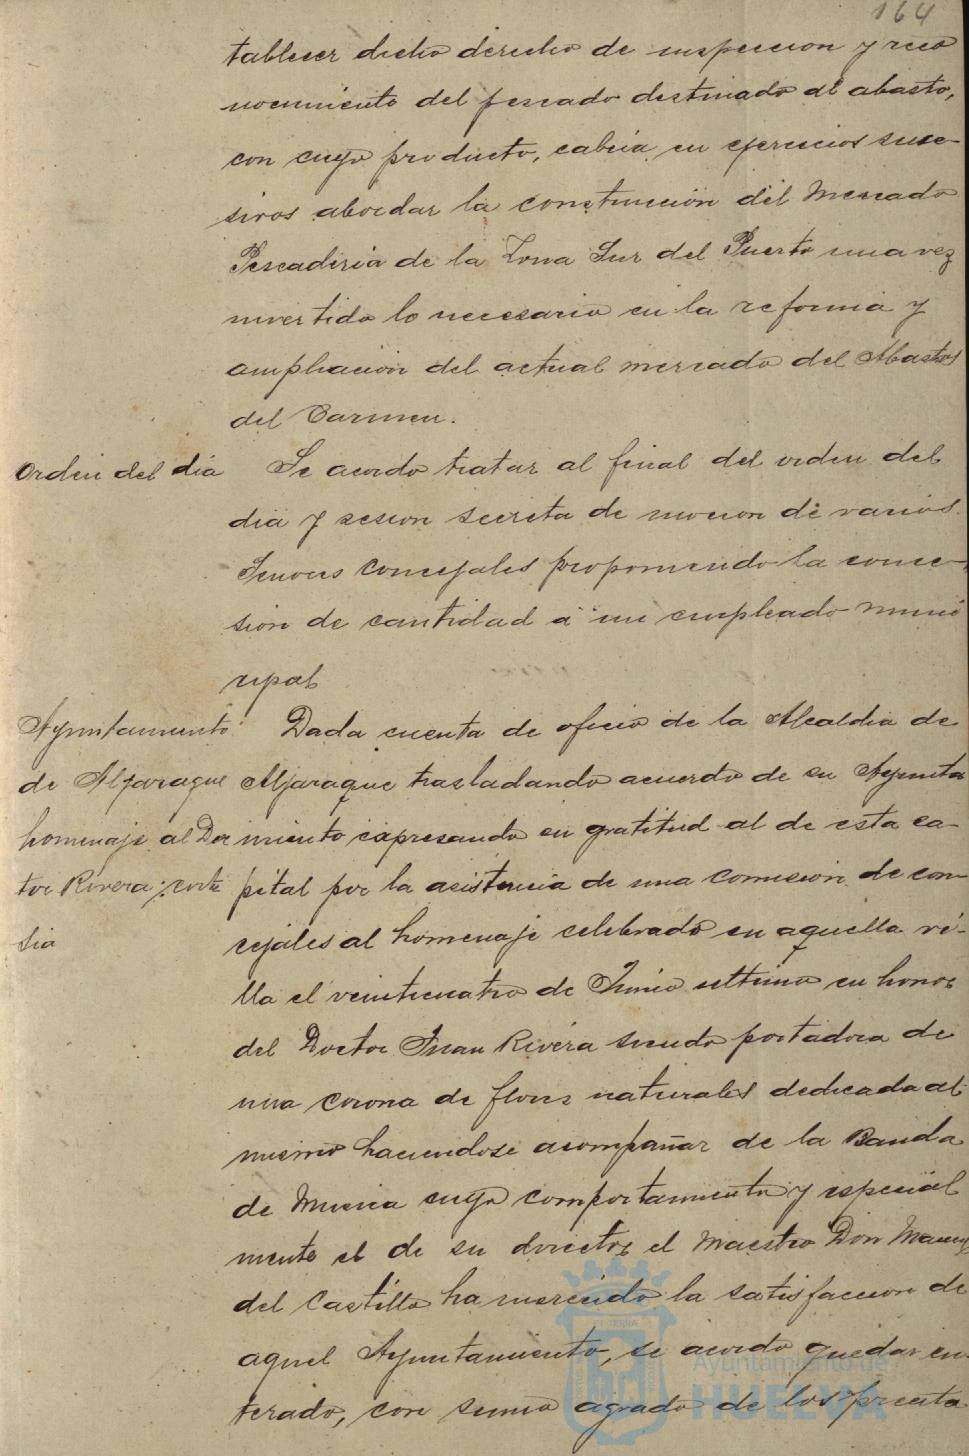 164
tablecer dicho derecho de inspeccion y reco
nocimiento del pescado destinado al abasto,
con cuyo producto, cabria en ejercicios suce-
sivos abordar la construcción del Mercado
Pescaderia de la Zona Sur del Puerto una vez
invertido lo necesario en la reforma y
ampliación del actual mercado del Abastos
del Carmen.
Orden del dia
Se acordo tratar al final del orden del
dia y sesion secreta de mocion de varios
Señores concejales proponiendo la conce-
sion de cantidad á un empleado muni
cipal
Ayuntamiento
de Aljaraque
homenaje al Doc
tor Rivera; corte
sia
Dada cuenta de oficio de la Alcaldia de
Aljaraque trasladando acuerdo de su Ayunta
miento expresando su gratitud al de esta ca-
pital por la asistencia de una comision de con-
cejales al homenaje celebrado en aquella vi-
lla el veinticuatro de Junio ultimo en honor
del Doctor Juan Rivera siendo portadora de
una corona de flores naturales dedicada al
mismo haciendose acompañar de la Banda
de Musica cuyo comportamiento y especial
mente el de su director el Maestro Don Manuel
del Castillo ha merecido la satisfaccion de
aquel Ayuntamiento, se acordo quedar en-
terado, con sumo agrado de los presta
Ayuntamiento de
HUELVA